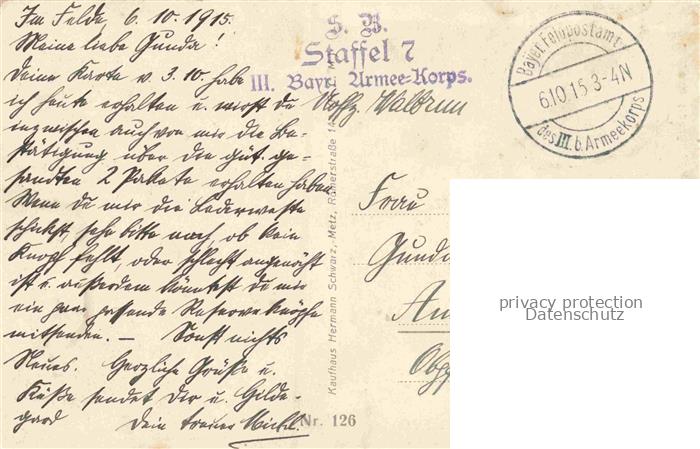 Im Felde, 6.10.1915.
Meine liebe Gunda!
Deine Karte v. 3.10. habe
ich heute erhalten u. wirst du
inzwischen auch von mir die Be-
stätigung über die güt. ge-
sandten 2 Pakete erhalten haben.
Wenn du mir die Lederweste
schickst, sehe bitte nach, ob kein
Knopf fehlt, oder schlecht angenäht
ist u. außerdem könntest du mir
ein paar passende Reserveknöpfe
mitsenden. — Sonst nichts
Neues. Herzliche Grüße u.
Küße sendet Dir u. Hilde-
gard Dein treuer Michl.
S. B.
Staffel 7
III. Bayr. Armee-Korps.
Bayer. Feldpostamt
6.10.15 3-4N
des III. b. Armeekorps
Frau
Gunda
Kaufhaus Hermann Schwarz, Metz, Römerstraße
Nr. 126
privacy protection
Datenschutz